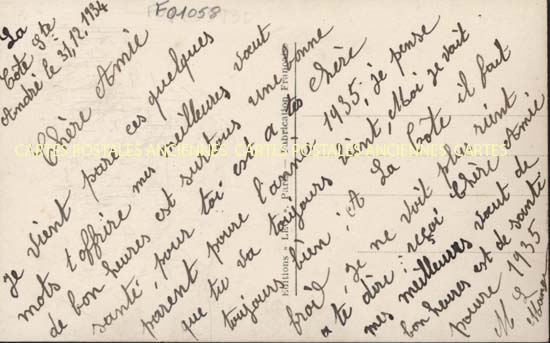 E01058
La
Côte Ste
André le 31/12.1934
Chère Amie
Je vient pare ces quelques
mots t'offrire mes meilleures vaut
de bon heures est surtous une bonne
santé, pour toi est a tes
parent poure l'année 1935, je pense
que tu va toujours bient, Moi je vait
toujours bien, A La Côte il fait
froid, Je ne voit plus rient
a té dire reçoi Chère Amie
mes meilleures vaut de
bon heures est de santé
poure 1935
CARTES POSTALES ANCIENNES CARTES POSTALES ANCIENNES CARTES
Fabrication Française